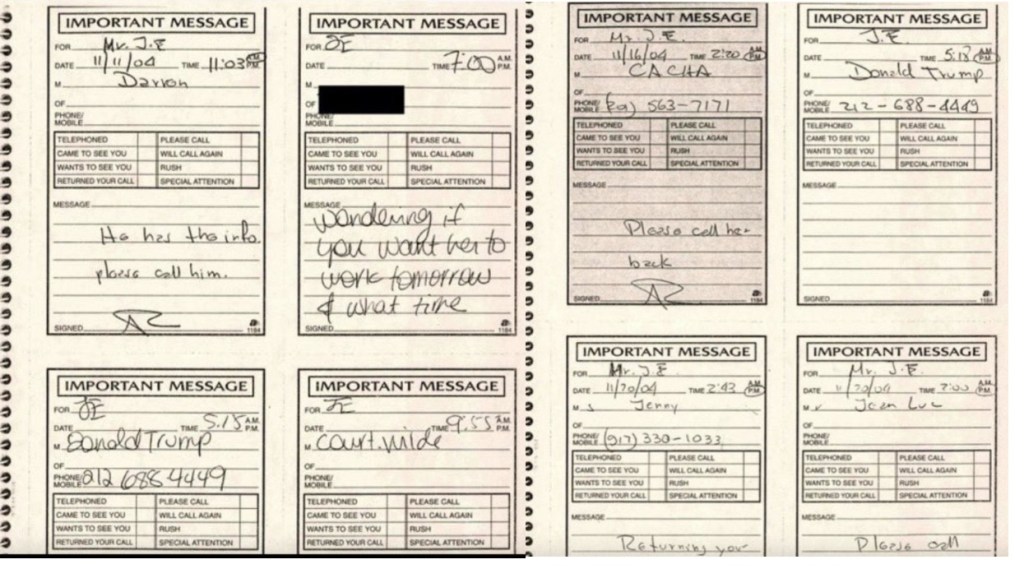 IMPORTANT MESSAGE
FOR Mr. J.E
DATE 11/11/04 TIME 11:03 A.M. P.M.
M Darron
OF
PHONE/
MOBILE
TELEPHONED PLEASE CALL
CAME TO SEE YOU WILL CALL AGAIN
WANTS TO SEE YOU RUSH
RETURNED YOUR CALL SPECIAL ATTENTION
MESSAGE
He has the info.
please call him.
SIGNED 1184
IMPORTANT MESSAGE
FOR JE
DATE TIME 7:00 A.M. P.M.
M
OF
PHONE/
MOBILE
TELEPHONED PLEASE CALL
CAME TO SEE YOU WILL CALL AGAIN
WANTS TO SEE YOU RUSH
RETURNED YOUR CALL SPECIAL ATTENTION
MESSAGE
wondering if
you want her to
work tomorrow
& what time
SIGNED 1184
IMPORTANT MESSAGE
FOR Mr. J.E.
DATE 11/16/04 TIME 2:20 A.M. P.M.
M CACHA
OF
PHONE/
MOBILE 563-7171
TELEPHONED PLEASE CALL
CAME TO SEE YOU WILL CALL AGAIN
WANTS TO SEE YOU RUSH
RETURNED YOUR CALL SPECIAL ATTENTION
MESSAGE
Please call her
back
SIGNED 1184
IMPORTANT MESSAGE
FOR J.E.
DATE TIME 5:18 A.M. P.M.
M Donald Trump
OF
PHONE/
MOBILE 212-688-4449
TELEPHONED PLEASE CALL
CAME TO SEE YOU WILL CALL AGAIN
WANTS TO SEE YOU RUSH
RETURNED YOUR CALL SPECIAL ATTENTION
MESSAGE
SIGNED 1184
IMPORTANT MESSAGE
FOR JE
DATE TIME 5:15 A.M. P.M.
M Donald Trump
OF
PHONE/
MOBILE 212 688 4449
TELEPHONED PLEASE CALL
CAME TO SEE YOU WILL CALL AGAIN
WANTS TO SEE YOU RUSH
RETURNED YOUR CALL SPECIAL ATTENTION
IMPORTANT MESSAGE
FOR JE
DATE TIME 9:55 A.M. P.M.
M court.wide
OF
PHONE/
MOBILE
TELEPHONED PLEASE CALL
CAME TO SEE YOU WILL CALL AGAIN
WANTS TO SEE YOU RUSH
RETURNED YOUR CALL SPECIAL ATTENTION
IMPORTANT MESSAGE
FOR Mr. J.E
DATE 11/20/04 TIME 2:43 A.M. P.M.
M s Jenny
OF
PHONE/
MOBILE (917) 330-1033
TELEPHONED PLEASE CALL
CAME TO SEE YOU WILL CALL AGAIN
WANTS TO SEE YOU RUSH
RETURNED YOUR CALL SPECIAL ATTENTION
MESSAGE
Returning your
IMPORTANT MESSAGE
FOR Mr. J.E.
DATE 11/20/04 TIME 7:00 A.M. P.M.
M r Jean Luc
OF
PHONE/
MOBILE
TELEPHONED PLEASE CALL
CAME TO SEE YOU WILL CALL AGAIN
WANTS TO SEE YOU RUSH
RETURNED YOUR CALL SPECIAL ATTENTION
MESSAGE
Please call